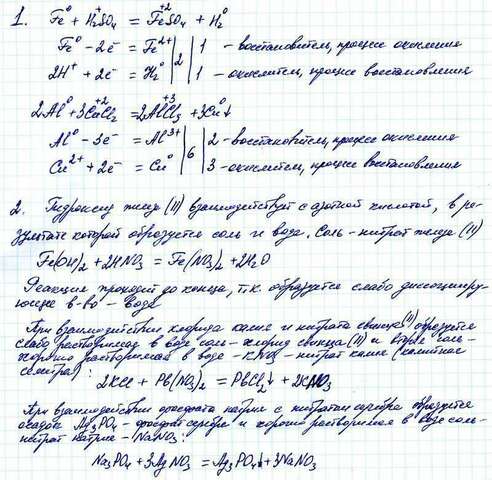 1. Fe⁰ + H₂SO₄ = Fe⁺²SO₄ + H₂⁰
Fe⁰ - 2e⁻ = Fe²⁺ | 2 | 1 - восстановитель, процесс окисления
2H⁺ + 2e⁻ = H₂⁰ | | 1 - окислитель, процесс восстановления
2Al⁰ + 3Cu⁺²Cl₂ = 2Al⁺³Cl₃ + 3Cu⁰↓
Al⁰ - 3e⁻ = Al³⁺ | 6 | 2 - восстановитель, процесс окисления
Cu²⁺ + 2e⁻ = Cu⁰ | | 3 - окислитель, процесс восстановления
2. Гидроксид железа (II) взаимодействует с азотной кислотой, в ре-
зультате которой образуется соль и вода. Соль - нитрат железа (II)
Fe(OH)₂ + 2HNO₃ = Fe(NO₃)₂ + 2H₂O
Реакция проходит до конца, т.к. образуется слабо диссоцииру-
ющее в-во - вода
При взаимодействии хлорида калия и нитрата свинца (II) образуется
слабо растворимая в воде соль - хлорид свинца (II) и вторая соль -
хорошо растворимая в воде - KNO₃ - нитрат калия (калийная
селитра):
2KCl + Pb(NO₃)₂ = PbCl₂↓ + 2KNO₃
При взаимодействии фосфата натрия с нитратом серебра образуется
осадок Ag₃PO₄ - фосфат серебра и хорошо растворимая в воде соль -
нитрат натрия - NaNO₃:
Na₃PO₄ + 3AgNO₃ = Ag₃PO₄↓ + 3NaNO₃